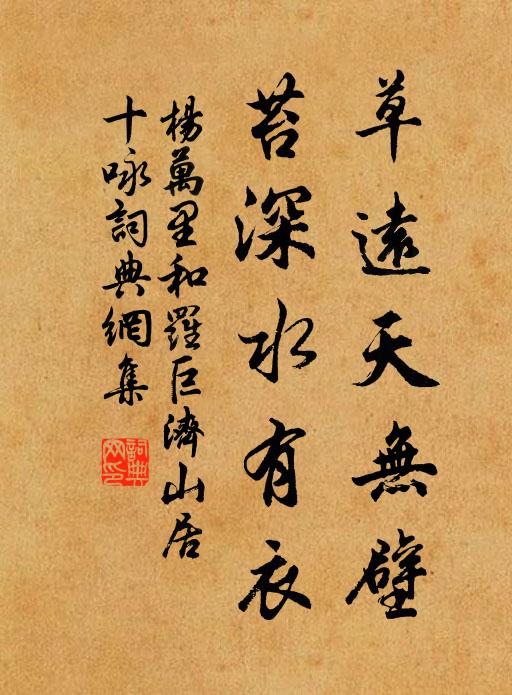 草遠天無壁
苔深水有衣
楊萬里和羅巨濟山居
十咏詞典網集
詞典
网印